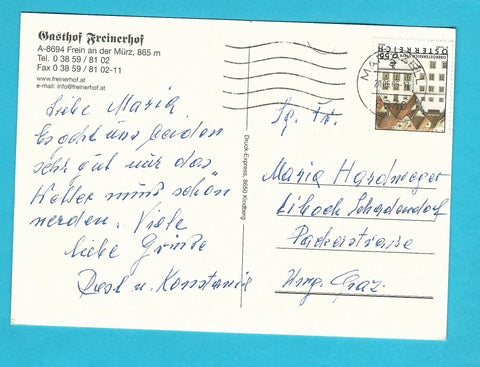 Gasthof Freinerhof
A-8694 Frein an der Mürz, 865 m
Tel. 0 38 59 / 81 02
Fax 0 38 59 / 81 02-11
www.freinerhof.at
e-mail: info@freinerhof.at
Liebe Maria
Es geht uns
sehr gut nur das
Wetter muss schön
werden. Viele
liebe Grüße
u. Konstanie
Druck-Express, 8650 Kindberg
ÖSTERREICH
0,55
Sg. Fr.
Maria Hardmeger
Schadendorf
Packerstrasse
Umg. Graz